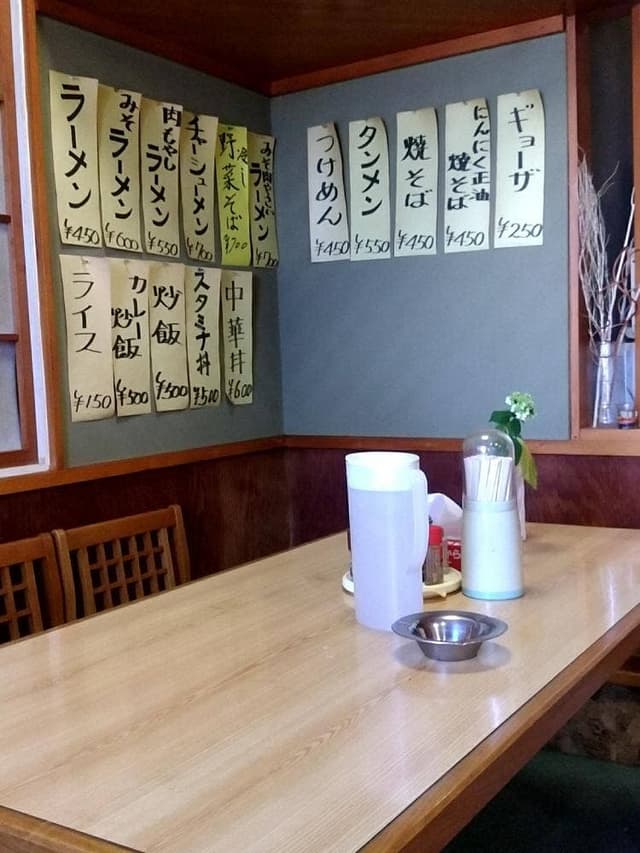 ラーメン
¥450
みそラーメン
¥600
肉もやしラーメン
¥550
チャーシューメン
¥700
冷し野菜そば
¥700
ラーメン
¥700
つけめん
¥450
タンメン
¥550
焼そば
¥450
にんにく正油焼そば
¥450
ギョーザ
¥250
ライス
¥150
カレー炒飯
¥500
炒飯
¥500
スタミナ丼
¥500
中華丼
¥600